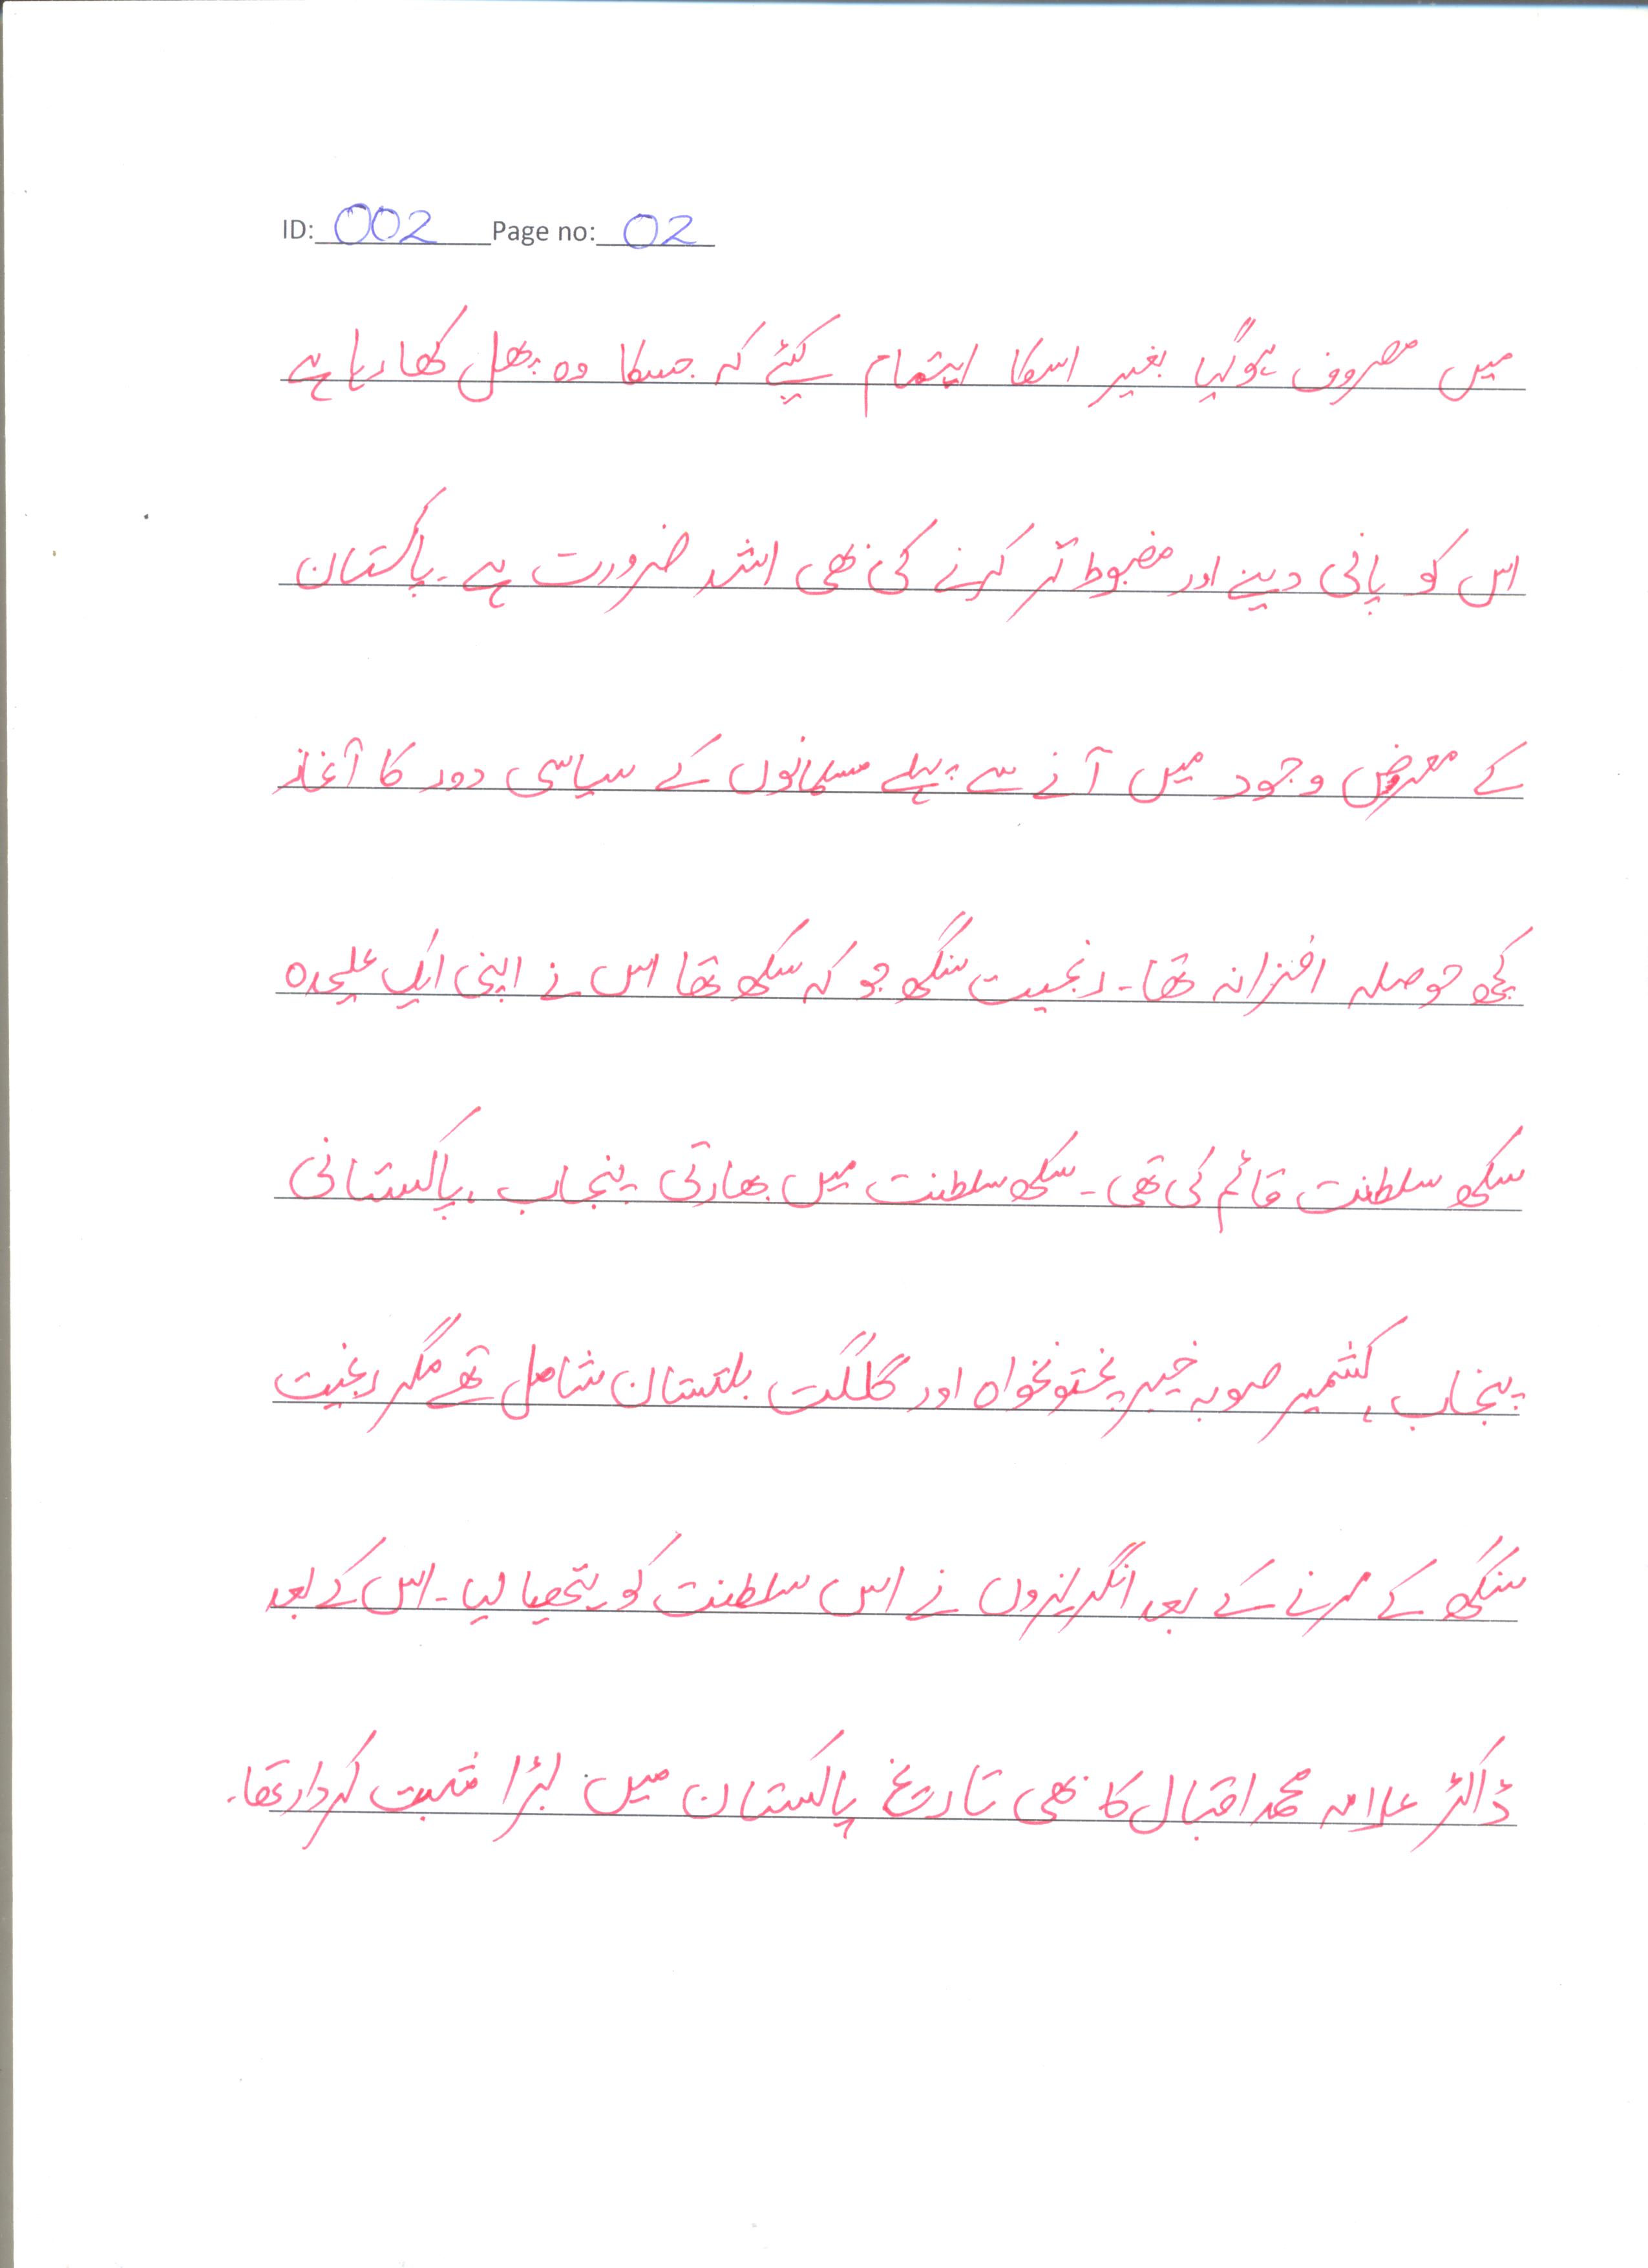 ID: 002 Page no: 02
میں مصروف ہوگیا بغیر اسکا اہتمام کیئے کہ جسکا وہ پھل کھا رہا ہے
اس کو پانی دینے اور مضبوط تر کرنے کی بھی اشد ضرورت ہے۔ پاکستان
کے معرض وجود میں آنے سے پہلے مسلمانوں کے سیاسی دور کا آغاز
کچھ حوصلہ افزانہ تھا۔ رنجیت سنگھ جو کہ سکھ تھا اس نے اپنی ایک علیحدہ
سکھ سلطنت قائم کی تھی۔ سکھ سلطنت میں بھارتی پنجاب، پاکستانی
پنجاب، کشمیر صوبہ خیبر پختونخواہ اور گلگت بلتستان شامل تھے مگر رنجیت
سنگھ کے مرنے کے بعد انگریزوں نے اس سلطنت کو ہتھیا لیا۔ اس کے بعد
ڈاکٹر علامہ محمد اقبال کا بھی تاریخ پاکستان میں بڑا مثبت کردار تھا۔